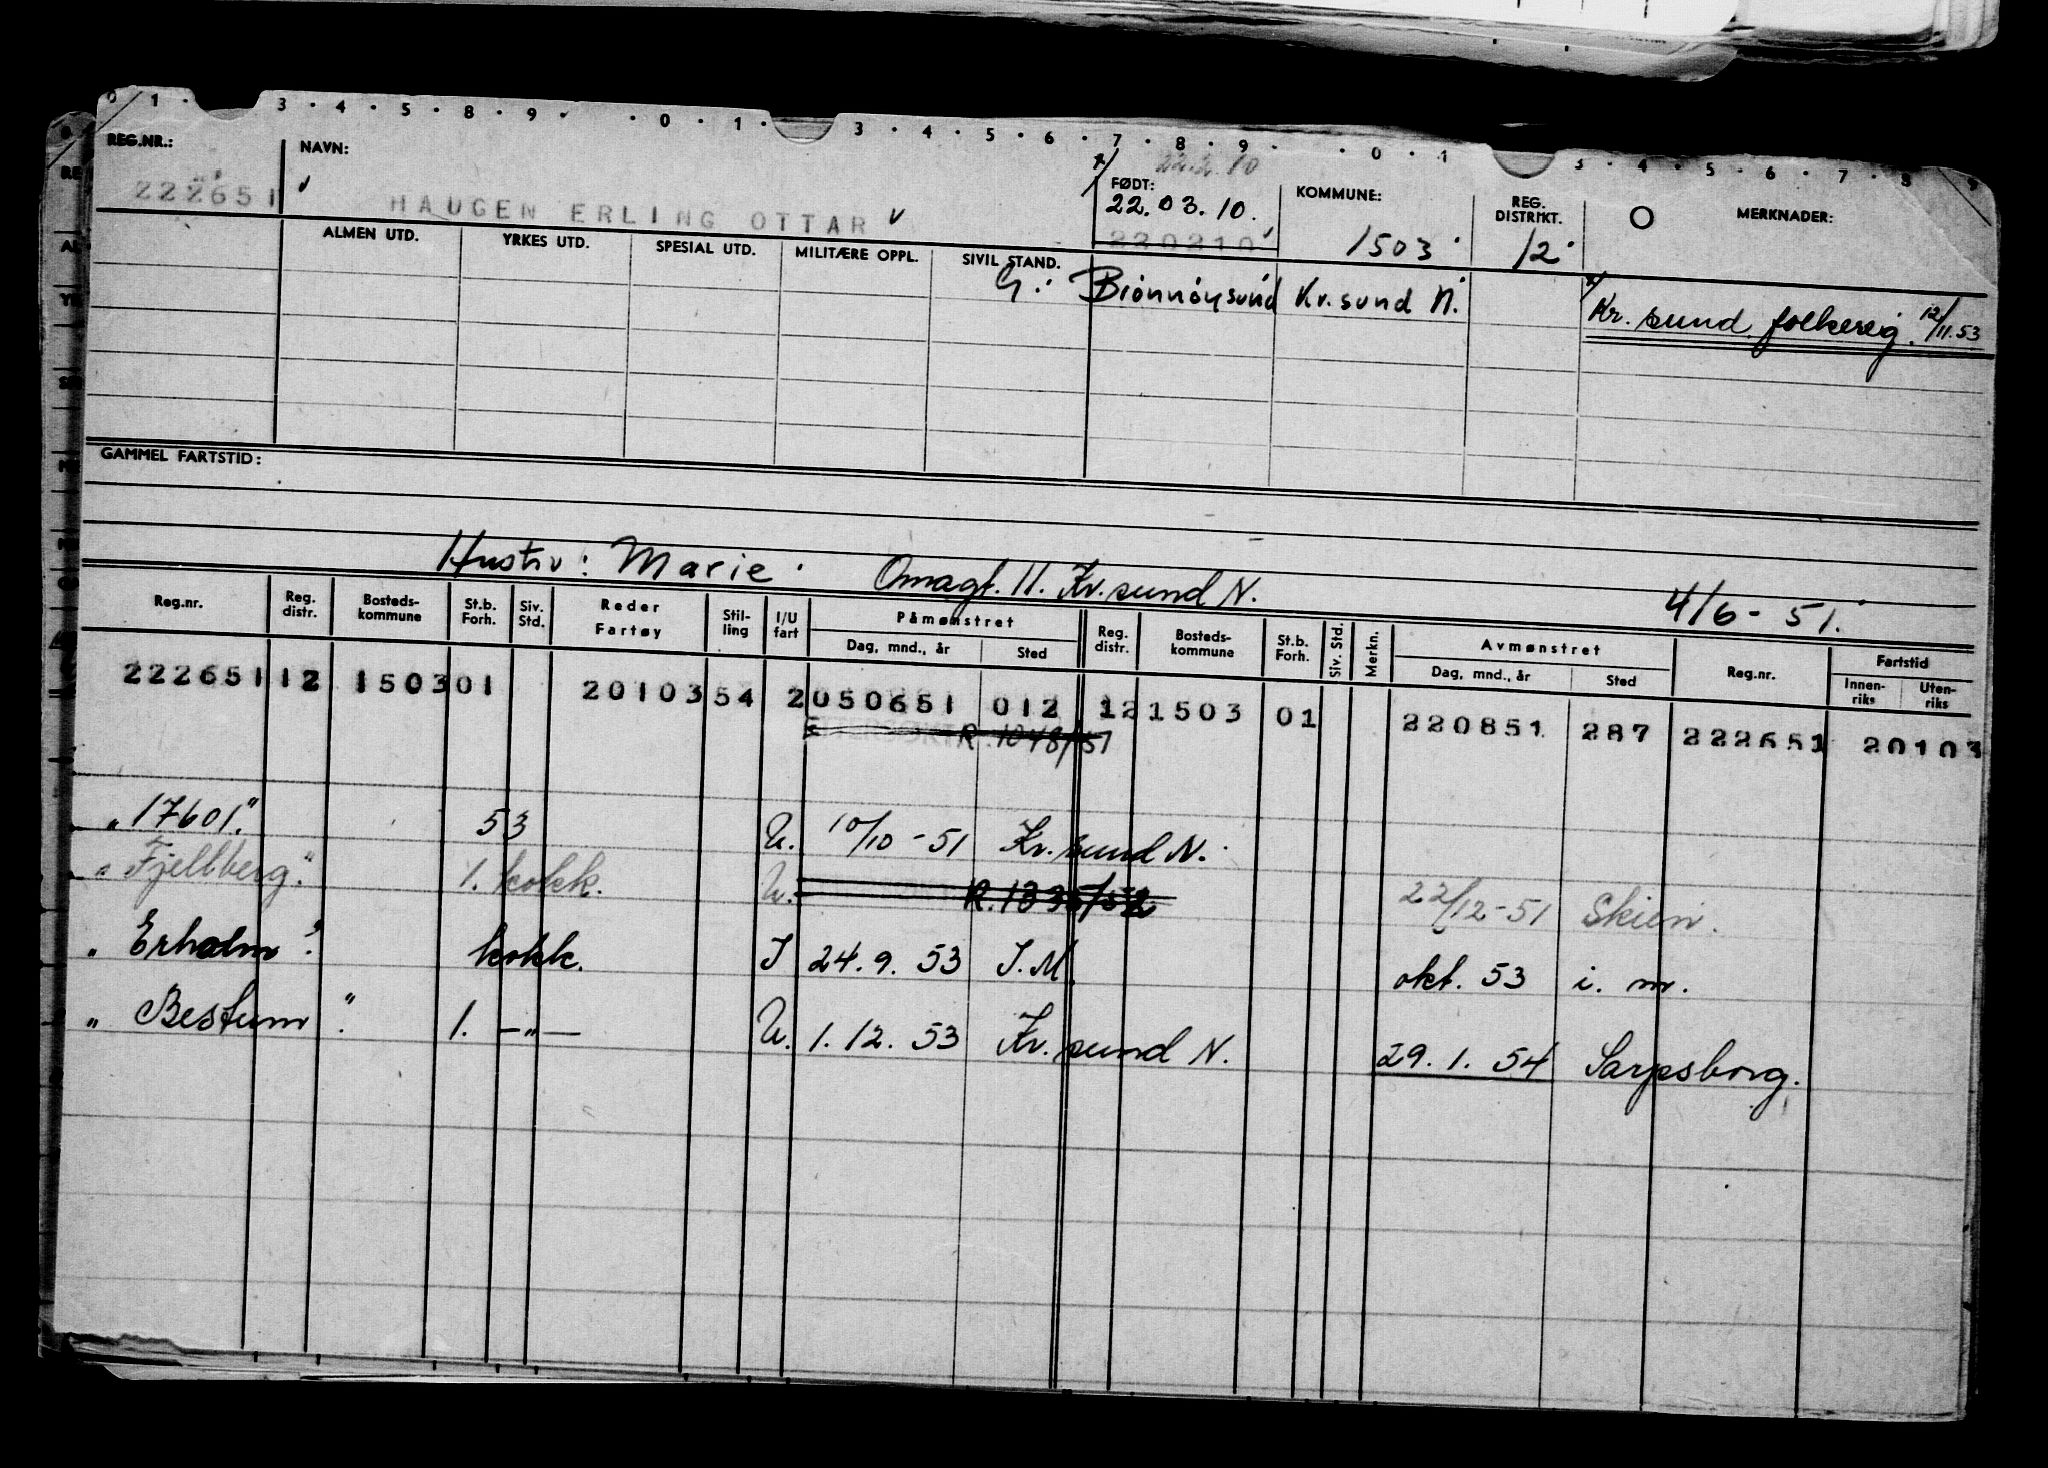 0 1 · 3 · 4 · 5 · 8 · 9 · · 0 · 1 · 3 · 4 · 5 · 6 · 7 · 8 · 9 · · 0 · 1 3 · 4 · 5 · 6 · 7 · 8 · 9
REG.NR.: NAVN: 22.2.10
FØDT: KOMMUNE: REG. DISTRIKT. MERKNADER:
222651 HAUGEN ERLING OTTAR 22.03.10. 1503 12
220210
ALMEN UTD. YRKES UTD. SPESIAL UTD. MILITÆRE OPPL. SIVIL STAND.
G. Brønnøysund Kr.sund N. Kr.sund folkereg. 12/11.53
GAMMEL FARTSTID:
Hustru: Marie. Omagt. 11. Kr.sund N. 4/6-51.
Reg.nr. Reg. distr. Bosteds-kommune St.b. Forh. Siv. Std. Reder Fartøy Stil-ling I/U fart Påmønstret Dag, mnd., år Sted Reg. distr. Bosteds-kommune St.b. Forh. Siv. Std. Merkn. Avmønstret Dag, mnd., år Sted Reg.nr. Fartstid Innen-riks Uten-riks
222651 12 1503 01 20103 54 2 050651 012 12 1503 01 220851 287 222651 20103
R. 1048/51
"17601." 53 U. 10/10-51 Kr.sund N.
"Fjellberg." 1. kokk. U. R. 1335/52 22/12-51 Skien.
"Erholm". kokk. I 24.9.53 I.M. okt. 53 i. m.
"Bestum". 1. —"— U. 1.12.53 Kr.sund N. 29.1.54 Sarpsborg.